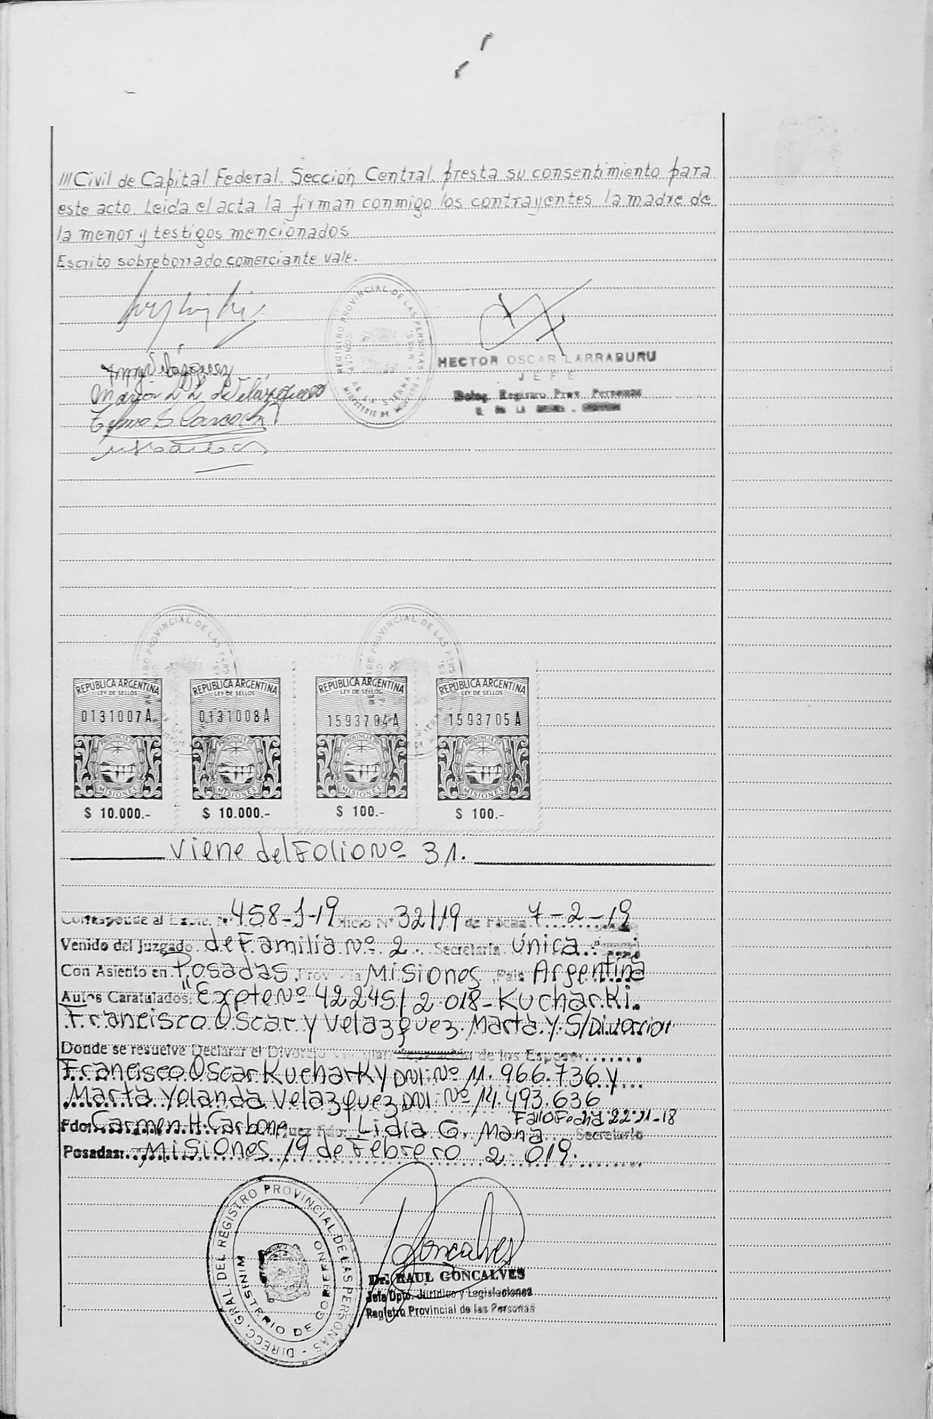 ///Civil de Capital Federal. Sección Central, presta su consentimiento para
este acto. Leída el acta la firman conmigo los contrayentes, la madre de
la menor y testigos mencionados.
Escrito sobreborrado comerciante vale.
REGISTRO PROVINCIAL DE LAS PERSONAS
HECTOR OSCAR LARRABURU
JEFE
Deleg. Registro Prov. Personas
REGISTRO PROVINCIAL DE LAS
PROVINCIAL DE LAS PERS
REPUBLICA ARGENTINA REPUBLICA ARGENTINA REPUBLICA ARGENTINA REPUBLICA ARGENTINA
LEY DE SELLOS LEY DE SELLOS LEY DE SELLOS LEY DE SELLOS
0131007A 0131008A 1593704A 1593705A
PROVINCIA DE PROVINCIA DE PROVINCIA DE PROVINCIA DE
MISIONES MISIONES MISIONES MISIONES
$ 10.000.- $ 10.000.- $ 100.- $ 100.-
viene del Folio Nº 31.
Corresponde al Expte. Nº 458-J-19 Oficio Nº 32/19 de Fecha 7-2-19
Venido del Juzgado de Familia Nº 2 Secretaría única
Con Asiento en Posadas Provincia Misiones País Argentina
Autos Caratulados: "Expte Nº 42245/2018-Kucharki
Francisco Oscar y Velazquez Marta Y. S/Divorcio"
Donde se resuelve Declarar el Divorcio Vincular de los Esposos
Francisco Oscar Kucharky DNI: Nº 11.966.736 y
Marta Yolanda Velazquez DNI: Nº 14.493.636
Fallo Fecha 22-11-18
Fdo: Carmen H. Carbone Juez Fdo: Lidia G. Mana Secretario
Posadas: Misiones 19 de Febrero 2019.
DIRECC. GRAL. DEL REGISTRO PROVINCIAL DE LAS PERSONAS
MINISTERIO DE GOBIERNO
Goncalves
Dr. RAUL GONCALVES
Jefe Dpto. Jurídico y Legislaciones
Registro Provincial de las Personas